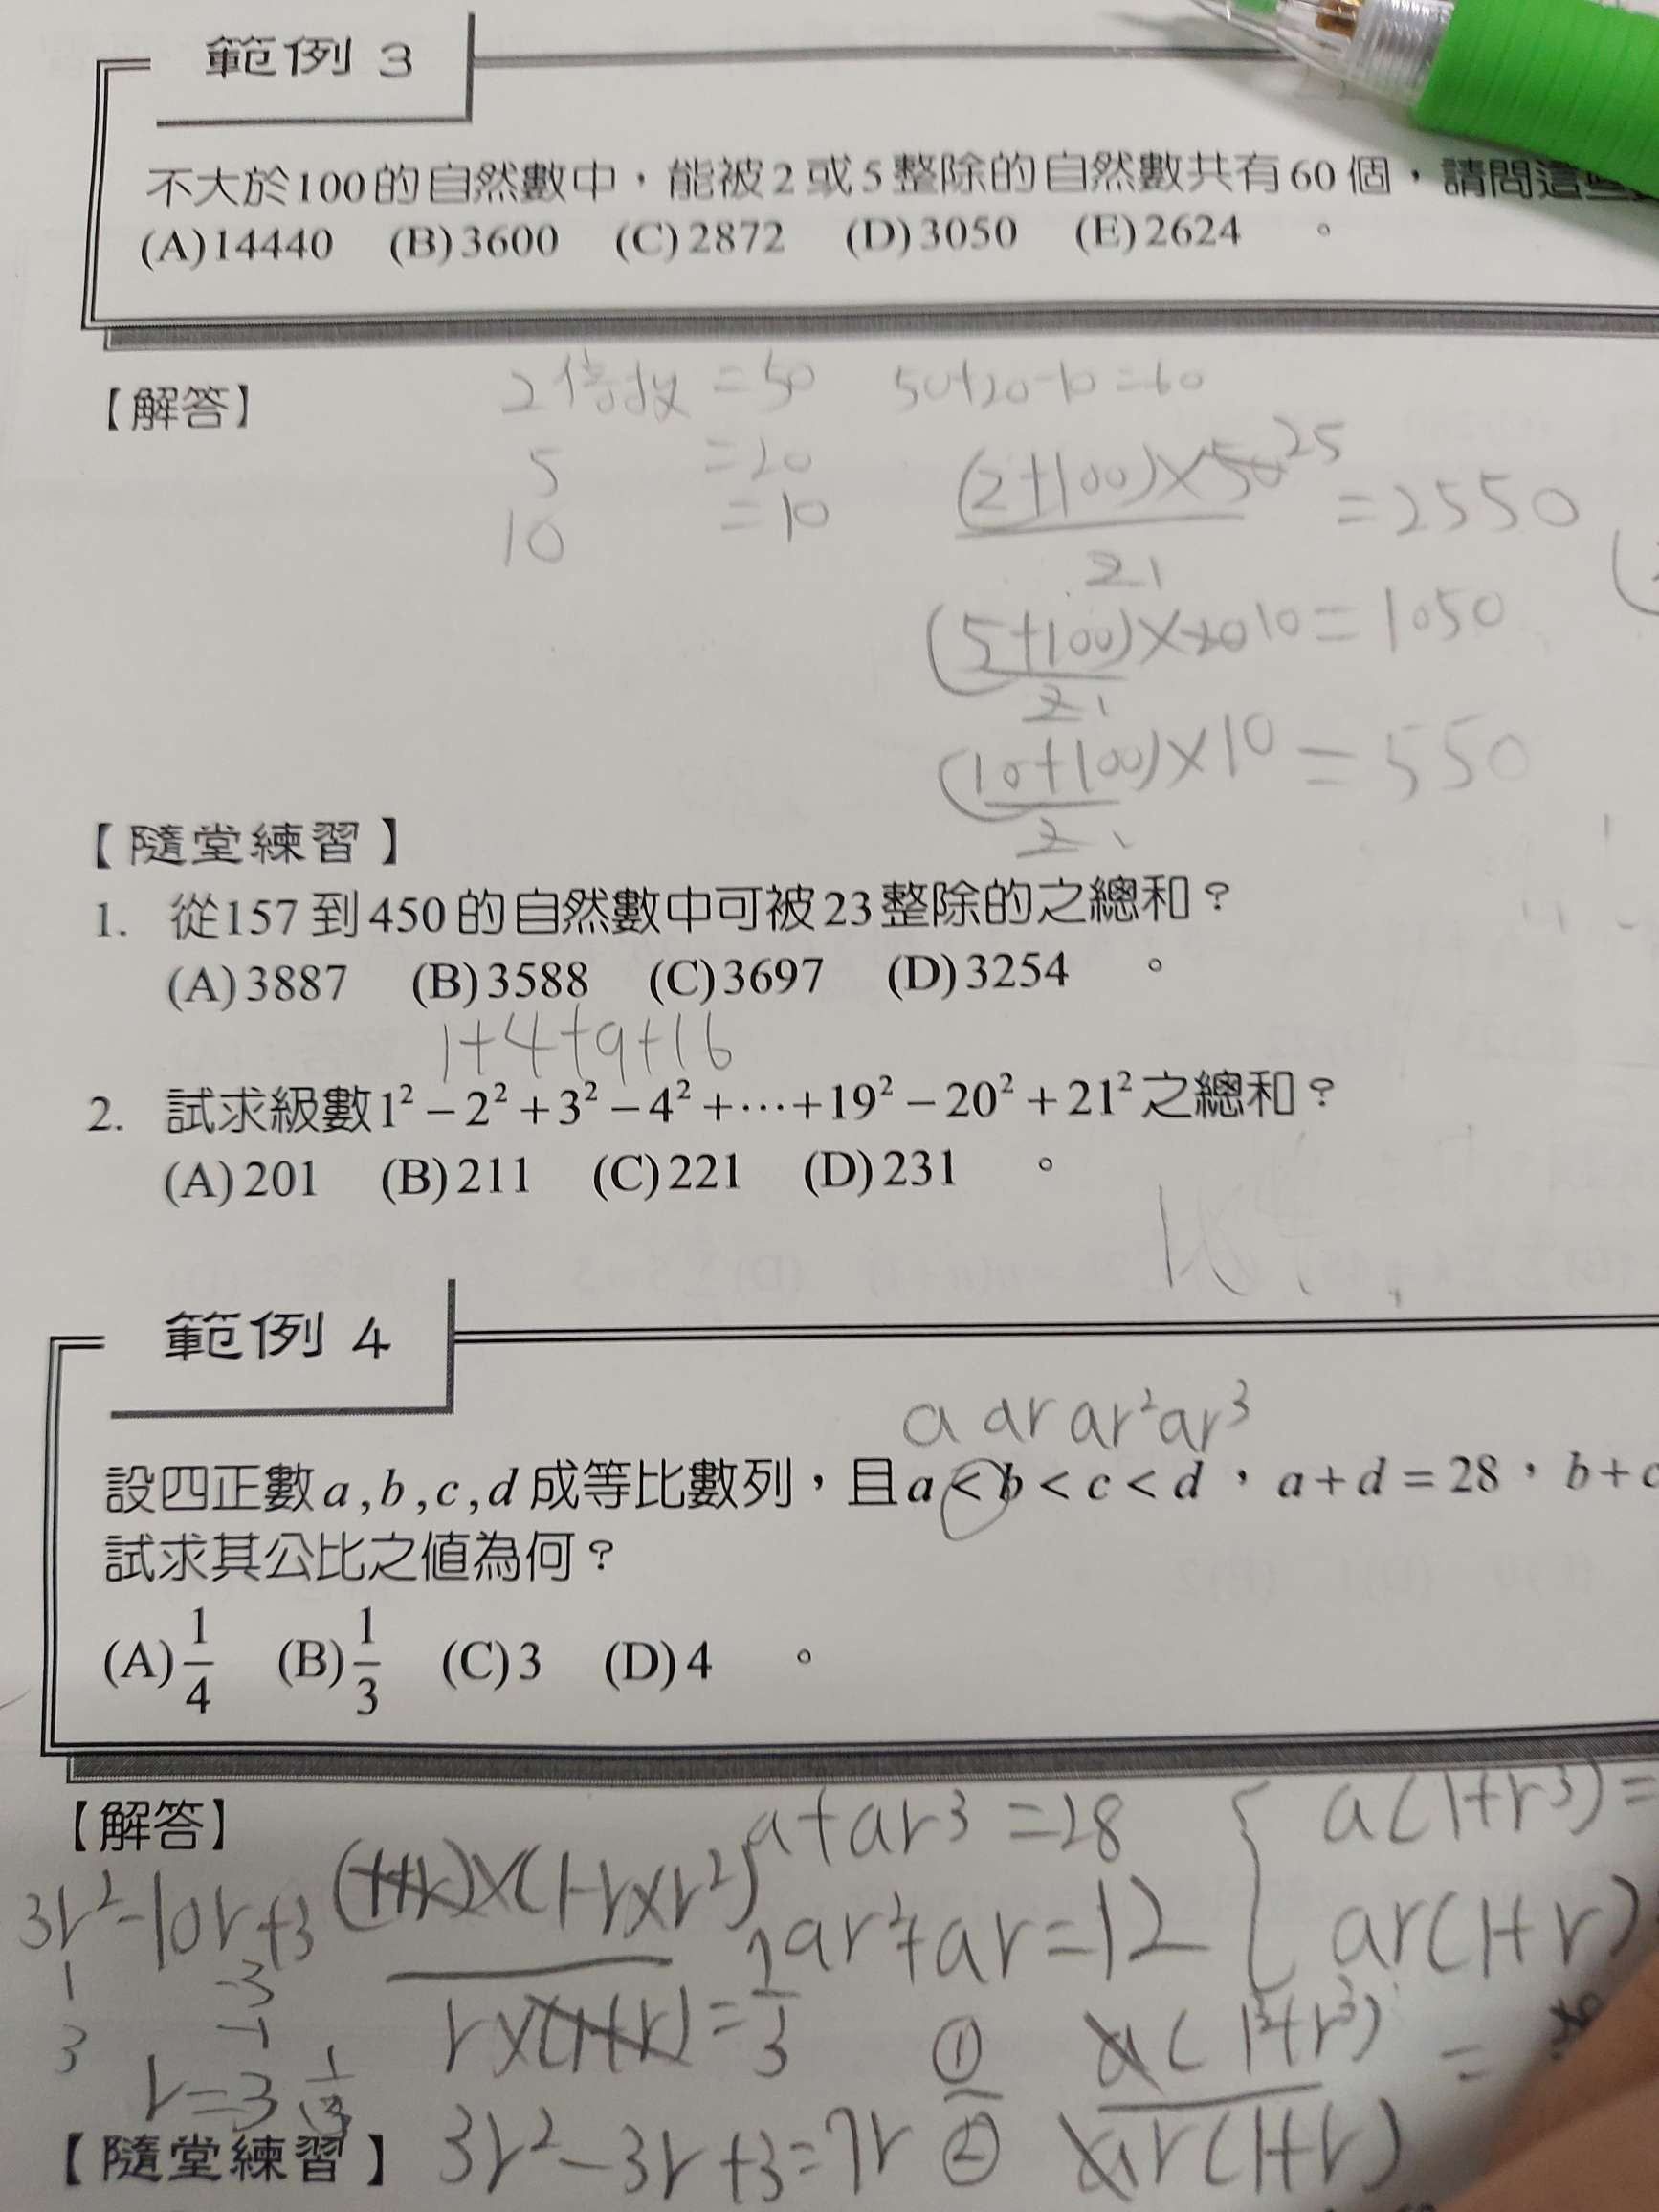 範例 3
不大於100的自然數中，能被2或5整除的自然數共有60個，請問這些
(A)14440 (B)3600 (C)2872 (D)3050 (E)2624 。
【解答】
2倍數 =50 50+20-10=60
5 =20
10 =10
(2+100)×50 25 =2550
2 1
(5+100)×20 10=1050
2 1
(10+100)×10=550
2
【隨堂練習】
1. 從157到450的自然數中可被23整除的之總和？
(A)3887 (B)3588 (C)3697 (D)3254 。
1+4+9+16
2. 試求級數1²−2²+3²−4²+⋯+19²−20²+21²之總和？
(A)201 (B)211 (C)221 (D)231 。
範例 4
a ar ar² ar³
設四正數a,b,c,d成等比數列，且a<b<c<d，a+d=28，b+c
試求其公比之值為何？
(A)1/4 (B)1/3 (C)3 (D)4 。
【解答】
a+ar³=28 { a(1+r³)=
ar²+ar=12 ar(1+r)
3r²-10r+3
1 -3
3 -1
r=3, 1/3
(1+r)×(1-r×r²)
r×(1+r) = 7/3
① a(1³+r³) =
② ar(1+r)
3r²-3r+3=7r
【隨堂練習】